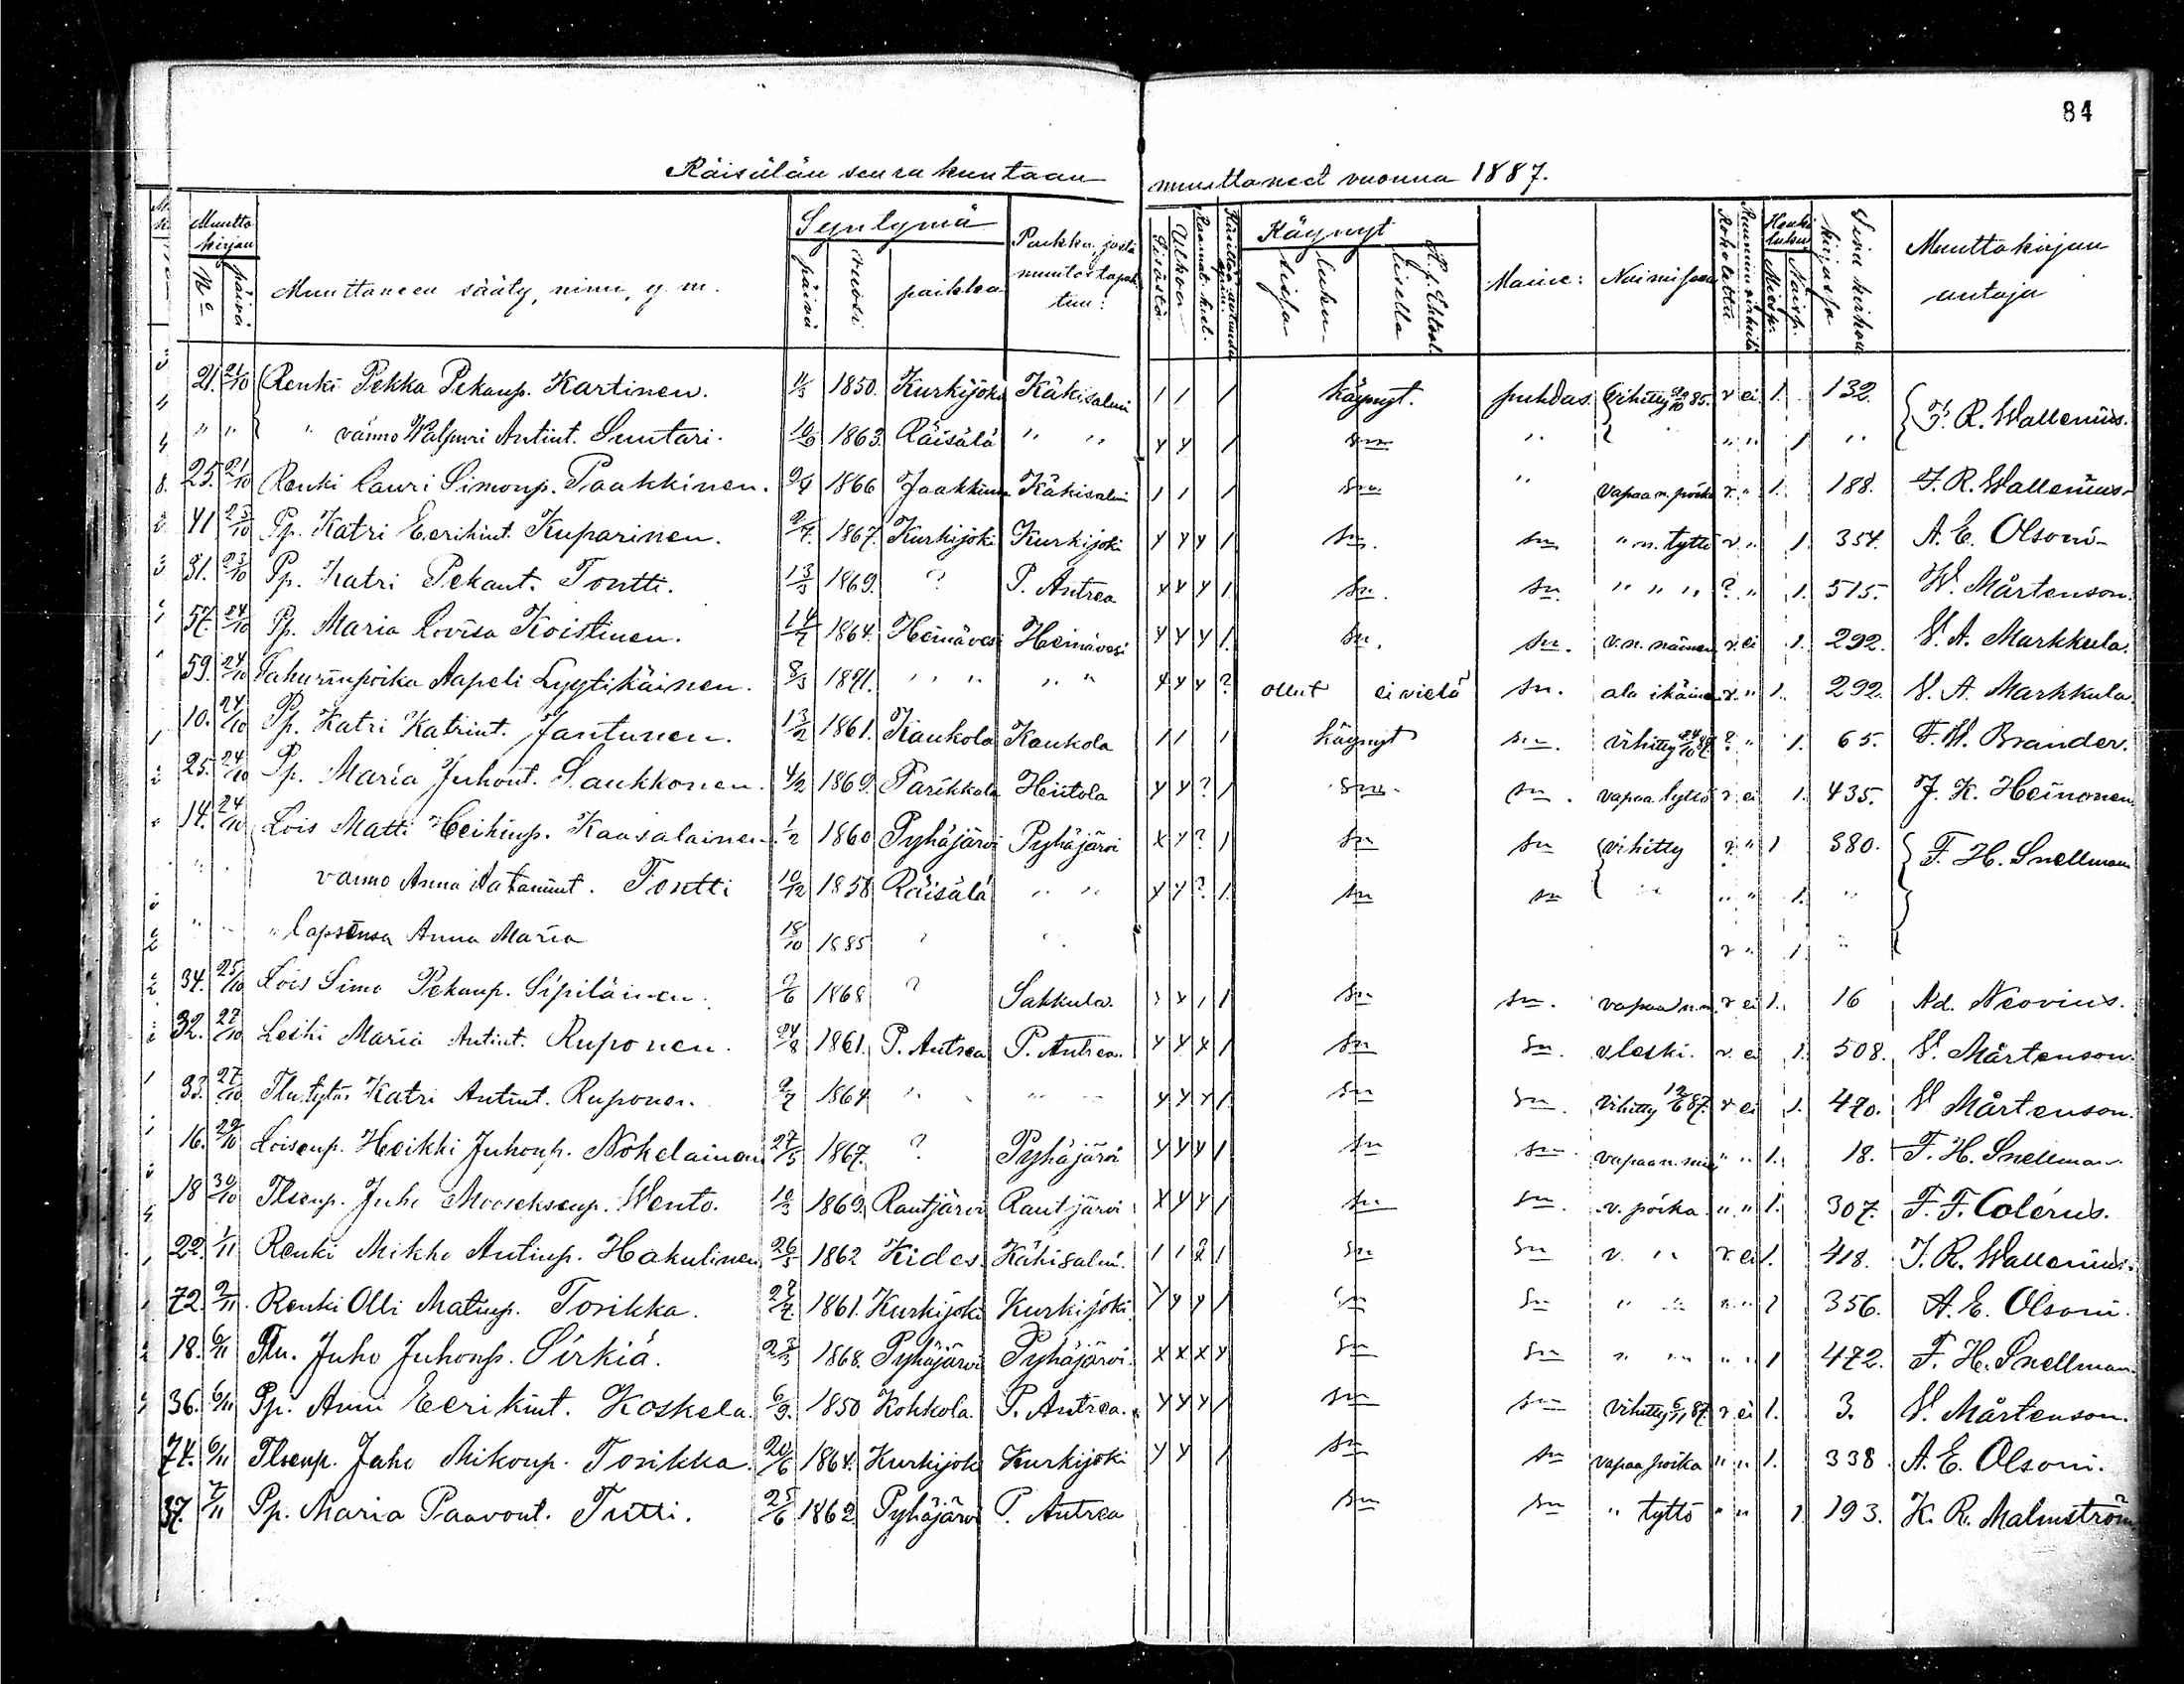 84
Räisälän seurakuntaan muuttaneet vuonna 1887.
Muuttokirjan No päivä Muuttaneen sääty, nimi, y. m. Syntymä päivä vuosi paikka Paikka, josta muutto tapahtuu: Sisästä Ulkoa Käynyt luku- H. p. Ehtool. lisella Maine: Naimisen Rokotettu Henki luku Miesp. Naisp. Sivu kirkon kirjassa Muuttokirjan antaja
21. 21/10 Renki Pekka Pekanp. Kartinen. 1850. Kurkijoki Käkisalmi 1 1 1 käynyt. puhdas Vihitty 85. r ei 1. 132. F. R. Wallenius.
" " " vaimo Walpuri Antint. Suntari. 1863. Räisälä " " y y 1 sm " " " " 1 "
25. 21/10 Renki Lauri Simonp. Paakkinen. 1866 Jaakkima Käkisalmi 1 1 1 sm " vapaa n. poika r. " 1. 188. F. R. Wallenius
41 23/10 Pp. Katri Eerikint. Kuparinen. 1867. Kurkijoki Kurkijoki y y y 1 sm. sm " n. tyttö r. " 1. 354. A. E. Olsoni
31. 23/10 Pp. Katri Pekant. Tontti. 13/3 1869. ? P. Antrea y y y 1. sm. sm " " " ? " 1. 515. W. Mårtenson.
57. 24/10 Pp. Maria Lovisa Koistinen. 1864. Heinävesi Heinävesi y y y 1. sm. sm. v. n. nainen r. ei 1. 292. V. A. Markkula.
59. 24/10 Aapeli Lyytikäinen. 8/3 1871. " " " " y y y ? ollut ei vielä sm. ala ikäinen r. " 1. 292. V. A. Markkula.
10. 24/10 Pp. Katri Katrint. Jantunen. 13/2 1861. Kaukola Kaukola 1 1 1 käynyt sm. vihitty ? " 1. 65. F. W. Brander.
25. 24/10 Pp. Maria Juhont. Saukkonen. 4/2 1869. Parikkala Hiitola y y ? 1 sm. sm. vapaa tyttö r ei 1. 435. J. K. Heinonen.
14. 24/10 Lois Matti Heikinp. Kaasalainen. 1/2 1860 Pyhäjärvi Pyhäjärvi x y ? 1 sm sm vihitty r. " 1 380. F. H. Snellman
vaimo Anna Aatamint. Tontti 10/12 1858 Räisälä " " y y ? 1. sm sm " " " 1. "
" " " lapsensa Anna Maria 18/10 1885 r " 1. "
34. 25/10 Lois Simo Pekanp. Sipiläinen. 1868 ? Sakkula. sm sm. vapaa n. m. r ei 1. 16 Ad. Neovius.
32. 27/10 Leski Maria Antint. Ruponen. 24/8 1861. P. Antrea P. Antrea. y y x 1 sm sm. v. leski. r. ei 1. 508. V. Mårtenson.
33. 27/10 Tlu. tytär Katri Antint. Ruponen. 1864 " " y y y 1. sm sm. Vihitty 12/6 87. r ei 1. 470. V. Mårtenson.
16. 29/10 Loisenp. Heikki Juhonp. Nokelainen 27/5 1867. ? Pyhäjärvi y y y 1 sm sm. vapaa n. mies " " 1. 18. F. H. Snellman.
18 30/10 Tlsenp. Juho Mooseksenp. Wento. 10/3 1869. Rautjärvi Rautjärvi x y y 1 sm sm. v. poika. " " 1. 307. F. F. Colérus.
22. 1/11 Renki Mikko Antinp. Hakulinen 26/3 1862 Kides Käkisalmi. 1 1 ? 1 sm sm v. " r. ei 1. 418. F. R. Wallenius.
72. 2/11. Renki Olli Matinp. Torikka. 1861. Kurkijoki Kurkijoki y y y 1 sm sm " " " " 1 356. A. E. Olsoni.
18. 6/11 Tlu. Juho Juhonp. Sirkiä. 23/3 1868. Pyhäjärvi Pyhäjärvi. x x x y sm sm " " " " 1 472. F. H. Snellman.
36. 6/11 Pp. Anni Eerikint. Koskela. 6/9. 1850 Kokkola. P. Antrea. y y y 1 sm sm Vihitty 6/11 87. r. ei 1. 3. V. Mårtenson.
74. 6/11 Tlsenp. Juho Mikonp. Torikka. 20/6 1864. Kurkijoki Kurkijoki y y 1 sm sm vapaa poika " " 1. 338. A. E. Olsoni.
37. 7/11 Pp. Maria Paavont. Tutti. 25/6 1862 Pyhäjärvi P. Antrea sm sm " tyttö " " 1. 193. K. R. Malmström.